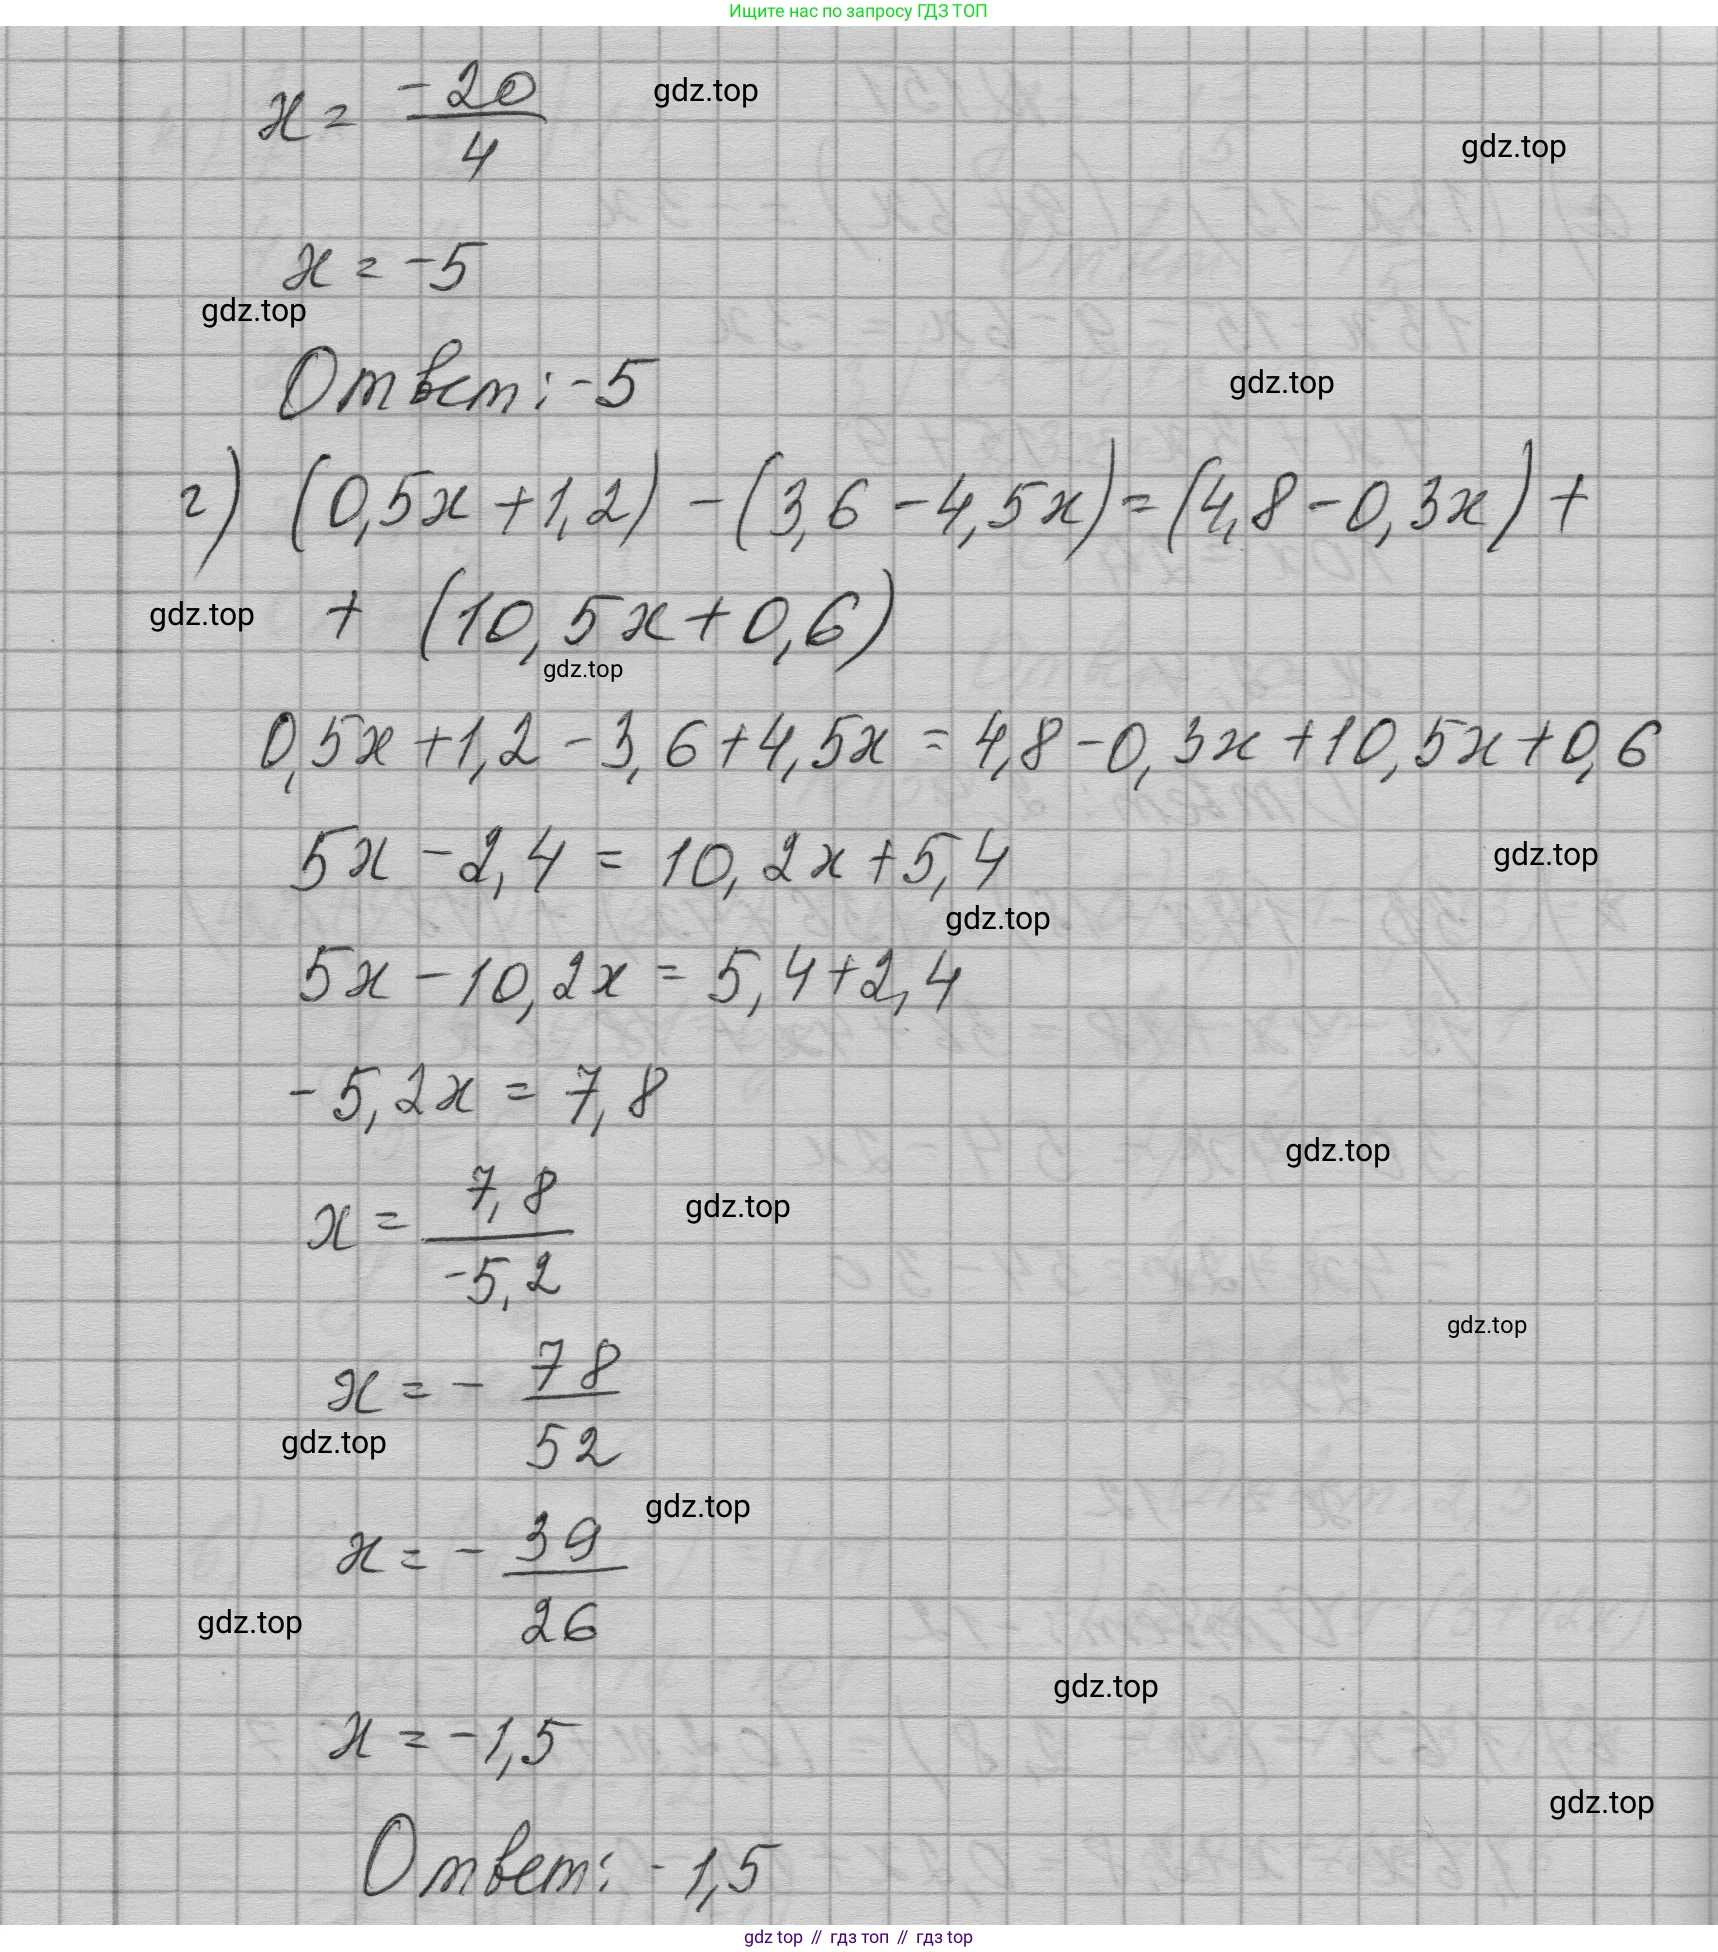 Ищите нас по запросу ГДЗ ТОП
x = -20/4
gdz.top
gdz.top
x = -5
gdz.top
Ответ: -5
gdz.top
г) (0,5x + 1,2) - (3,6 - 4,5x) = (4,8 - 0,3x) +
gdz.top
+ (10,5x + 0,6)
gdz.top
0,5x + 1,2 - 3,6 + 4,5x = 4,8 - 0,3x + 10,5x + 0,6
5x - 2,4 = 10,2x + 5,4
gdz.top
gdz.top
5x - 10,2x = 5,4 + 2,4
-5,2x = 7,8
gdz.top
x = 7,8/-5,2
gdz.top
gdz.top
x = - 78/52
gdz.top
gdz.top
x = - 39/26
gdz.top
gdz.top
x = -1,5
gdz.top
Ответ: -1,5
gdz top // гдз топ // гдз top